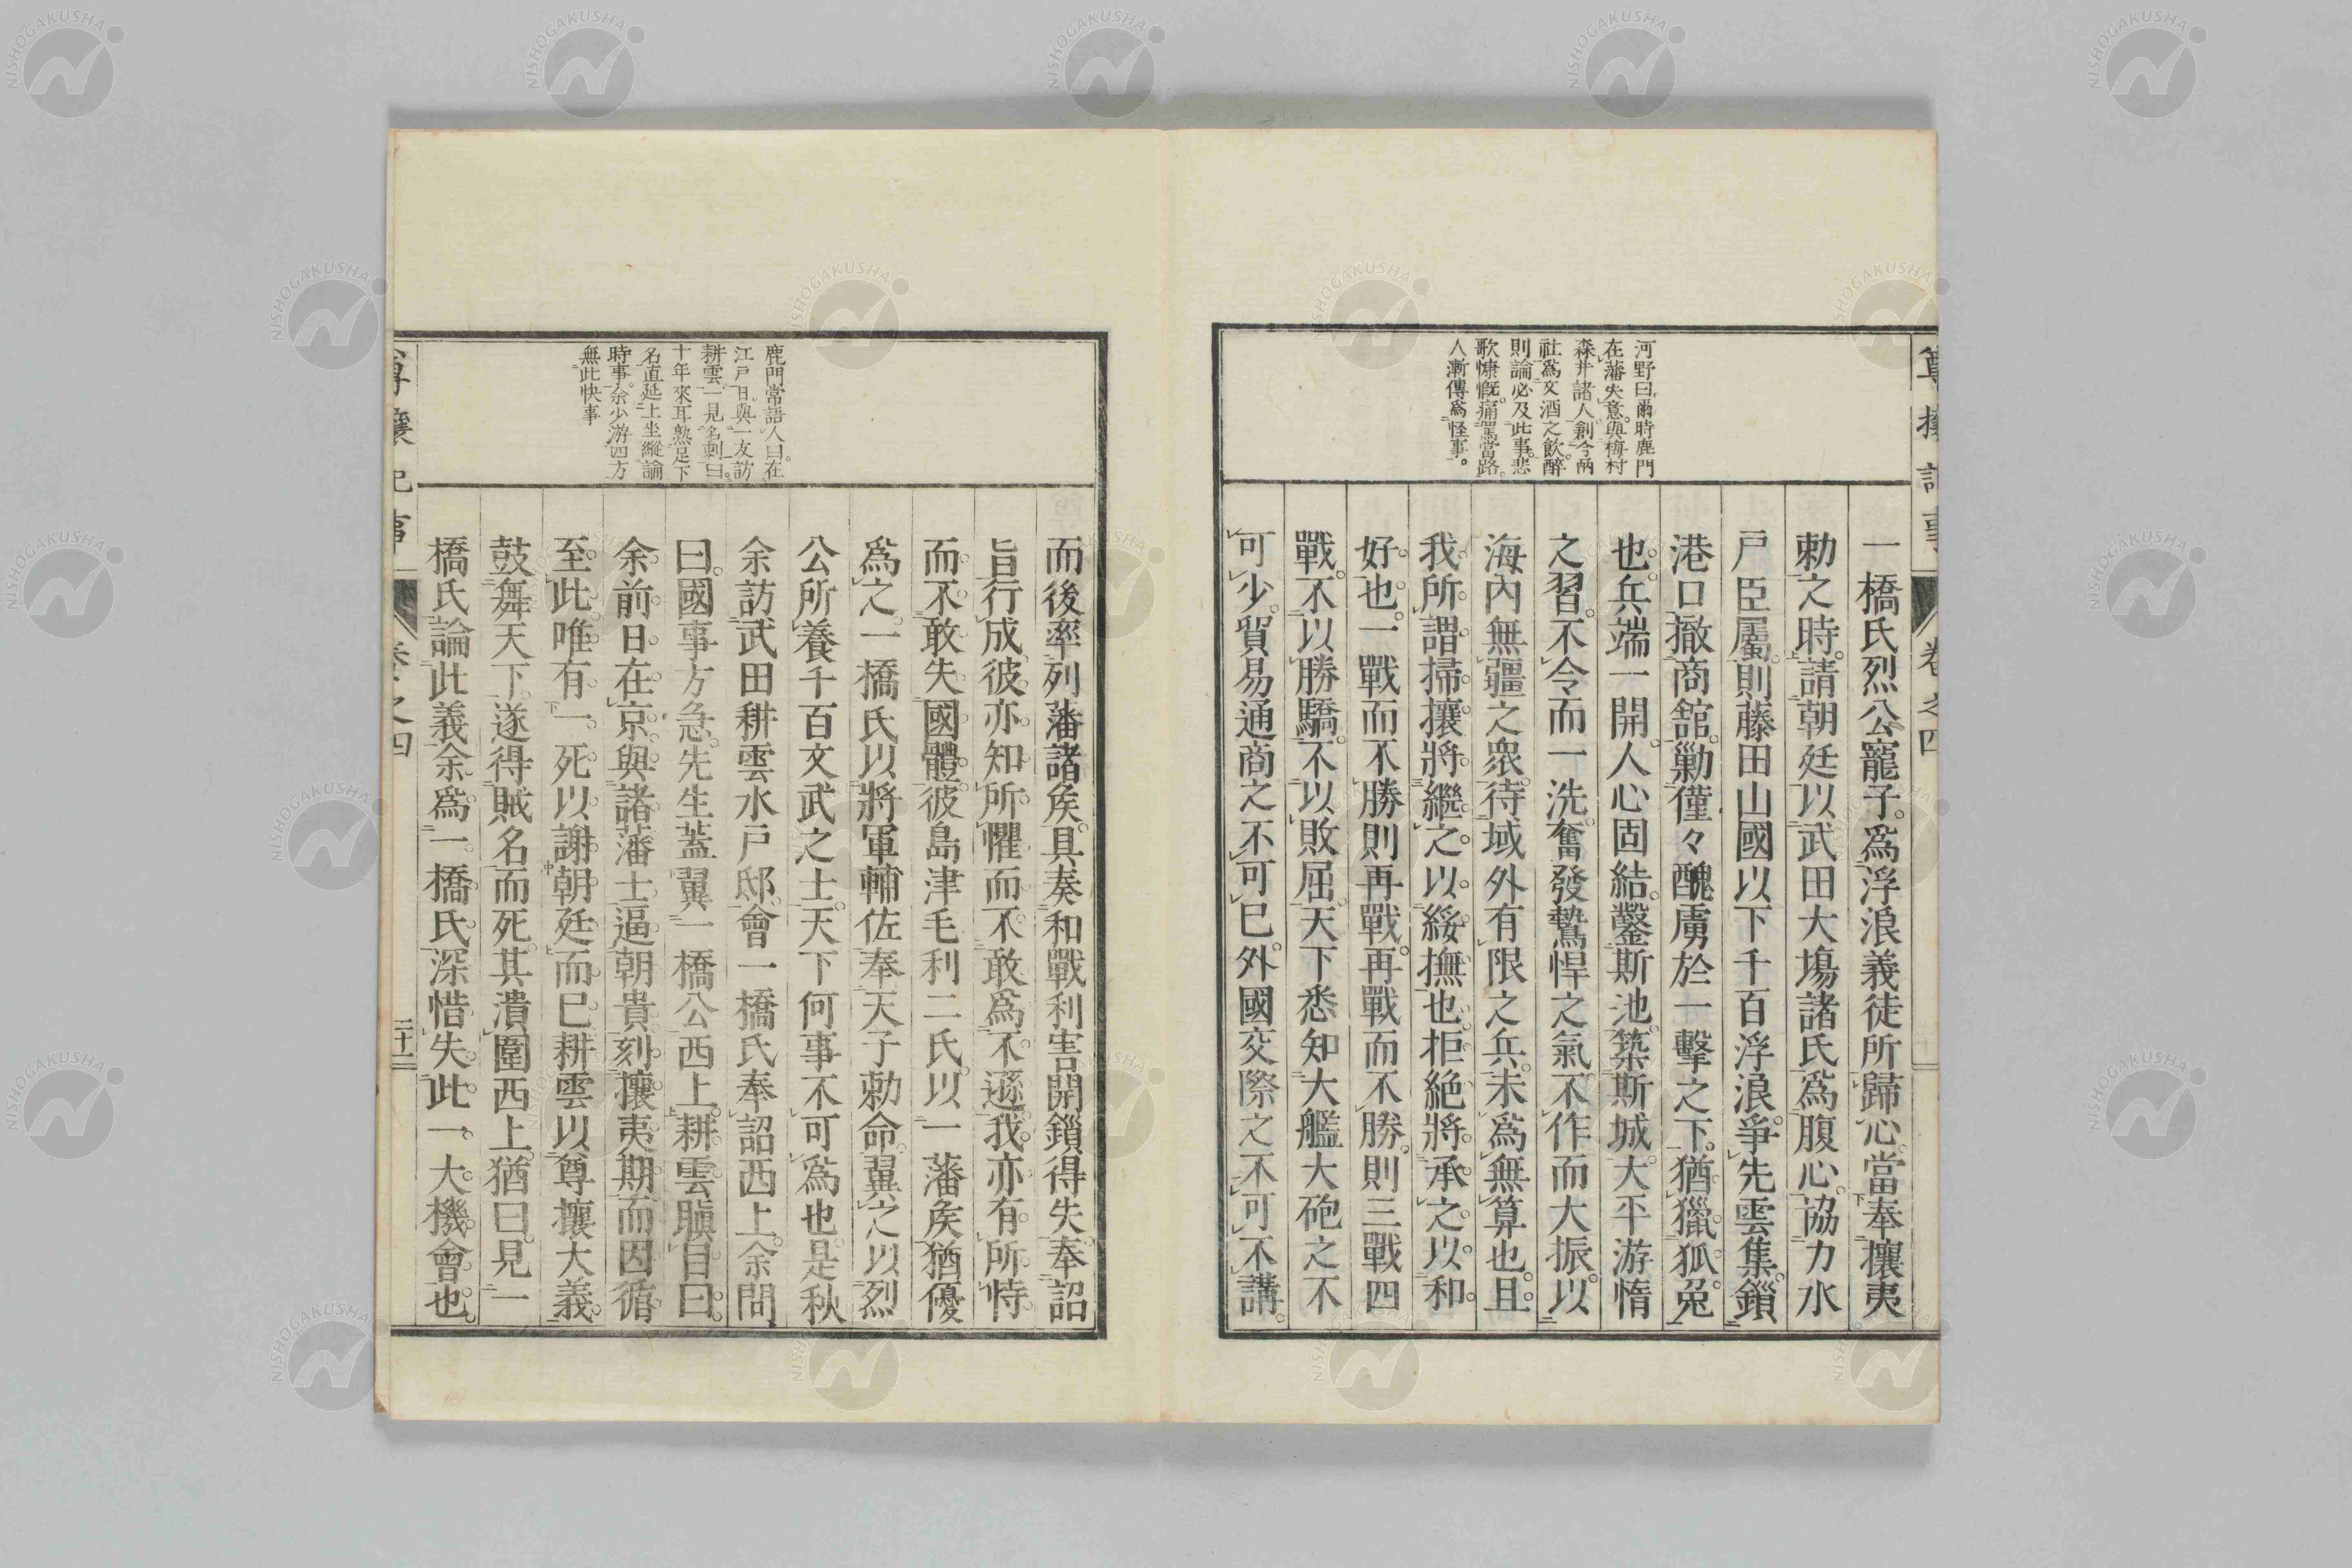 尊攘記事
卷之四
河野曰爾時鹿門
在藩失意。與梅村
森井諸人創今兩
社爲文酒之飲醉
則論必及此事。悲
歌慷慨。痛罵當路。
人漸傳爲怪事。
一橋氏烈公寵子。爲浮浪義徒所歸心。當奉攘夷
勅之時。請朝廷以武田大塲諸氏爲腹心。協力水
戸臣屬。則藤田山國以下千百浮浪。爭先雲集。鎖
港口撤商館。勦僅々醜虜於一擊之下。猶獵狐兔
也。兵端一開。人心固結。鑿斯池。築斯城。大平游惰
之習。不令而一洗。奮發鷙悍之氣。不作而大振。以
海內無疆之衆。待域外有限之兵。未爲無算也。且
我所謂掃攘。將繼之以綏撫也。拒絕將承之以和
好也。一戰而不勝則再戰。再戰而不勝。則三戰四
戰。不以勝驕。不以敗屈。天下悉知大艦大砲之不
可少。貿易通商之不可已。外國交際之不可不講。
鹿門常語人曰。在
江戸日與一友訪
耕雲。一見名刺曰。
十年來耳熟足下
名直延上坐縱論
時事。余少游四方
無此快事
而後率列藩諸矦。具奏和戰利害開鎖得失。奉詔
旨行成。彼亦知所懼而不敢爲不遜。我亦有所恃
而不敢失國體。彼島津毛利二氏。以一藩矦猶優
爲之。一橋氏以將軍輔佐奉天子勅命。翼之以烈
公所養千百文武之士。天下何事不可爲也。是秋
余訪武田耕雲水戸邸。會一橋氏奉詔西上。余問
曰。國事方急。先生蓋翼一橋公西上。耕雲瞋目曰。
余前日在京。與諸藩士逼朝貴。刻攘夷期。而因循
至此。唯有一死以謝朝廷而已。耕雲以尊攘大義。
鼓舞天下。遂得賊名而死。其潰圍西上。猶曰。見一
橋氏論此義。余爲一橋氏深惜失此一大機會也。
尊攘記事
卷之四
二十二